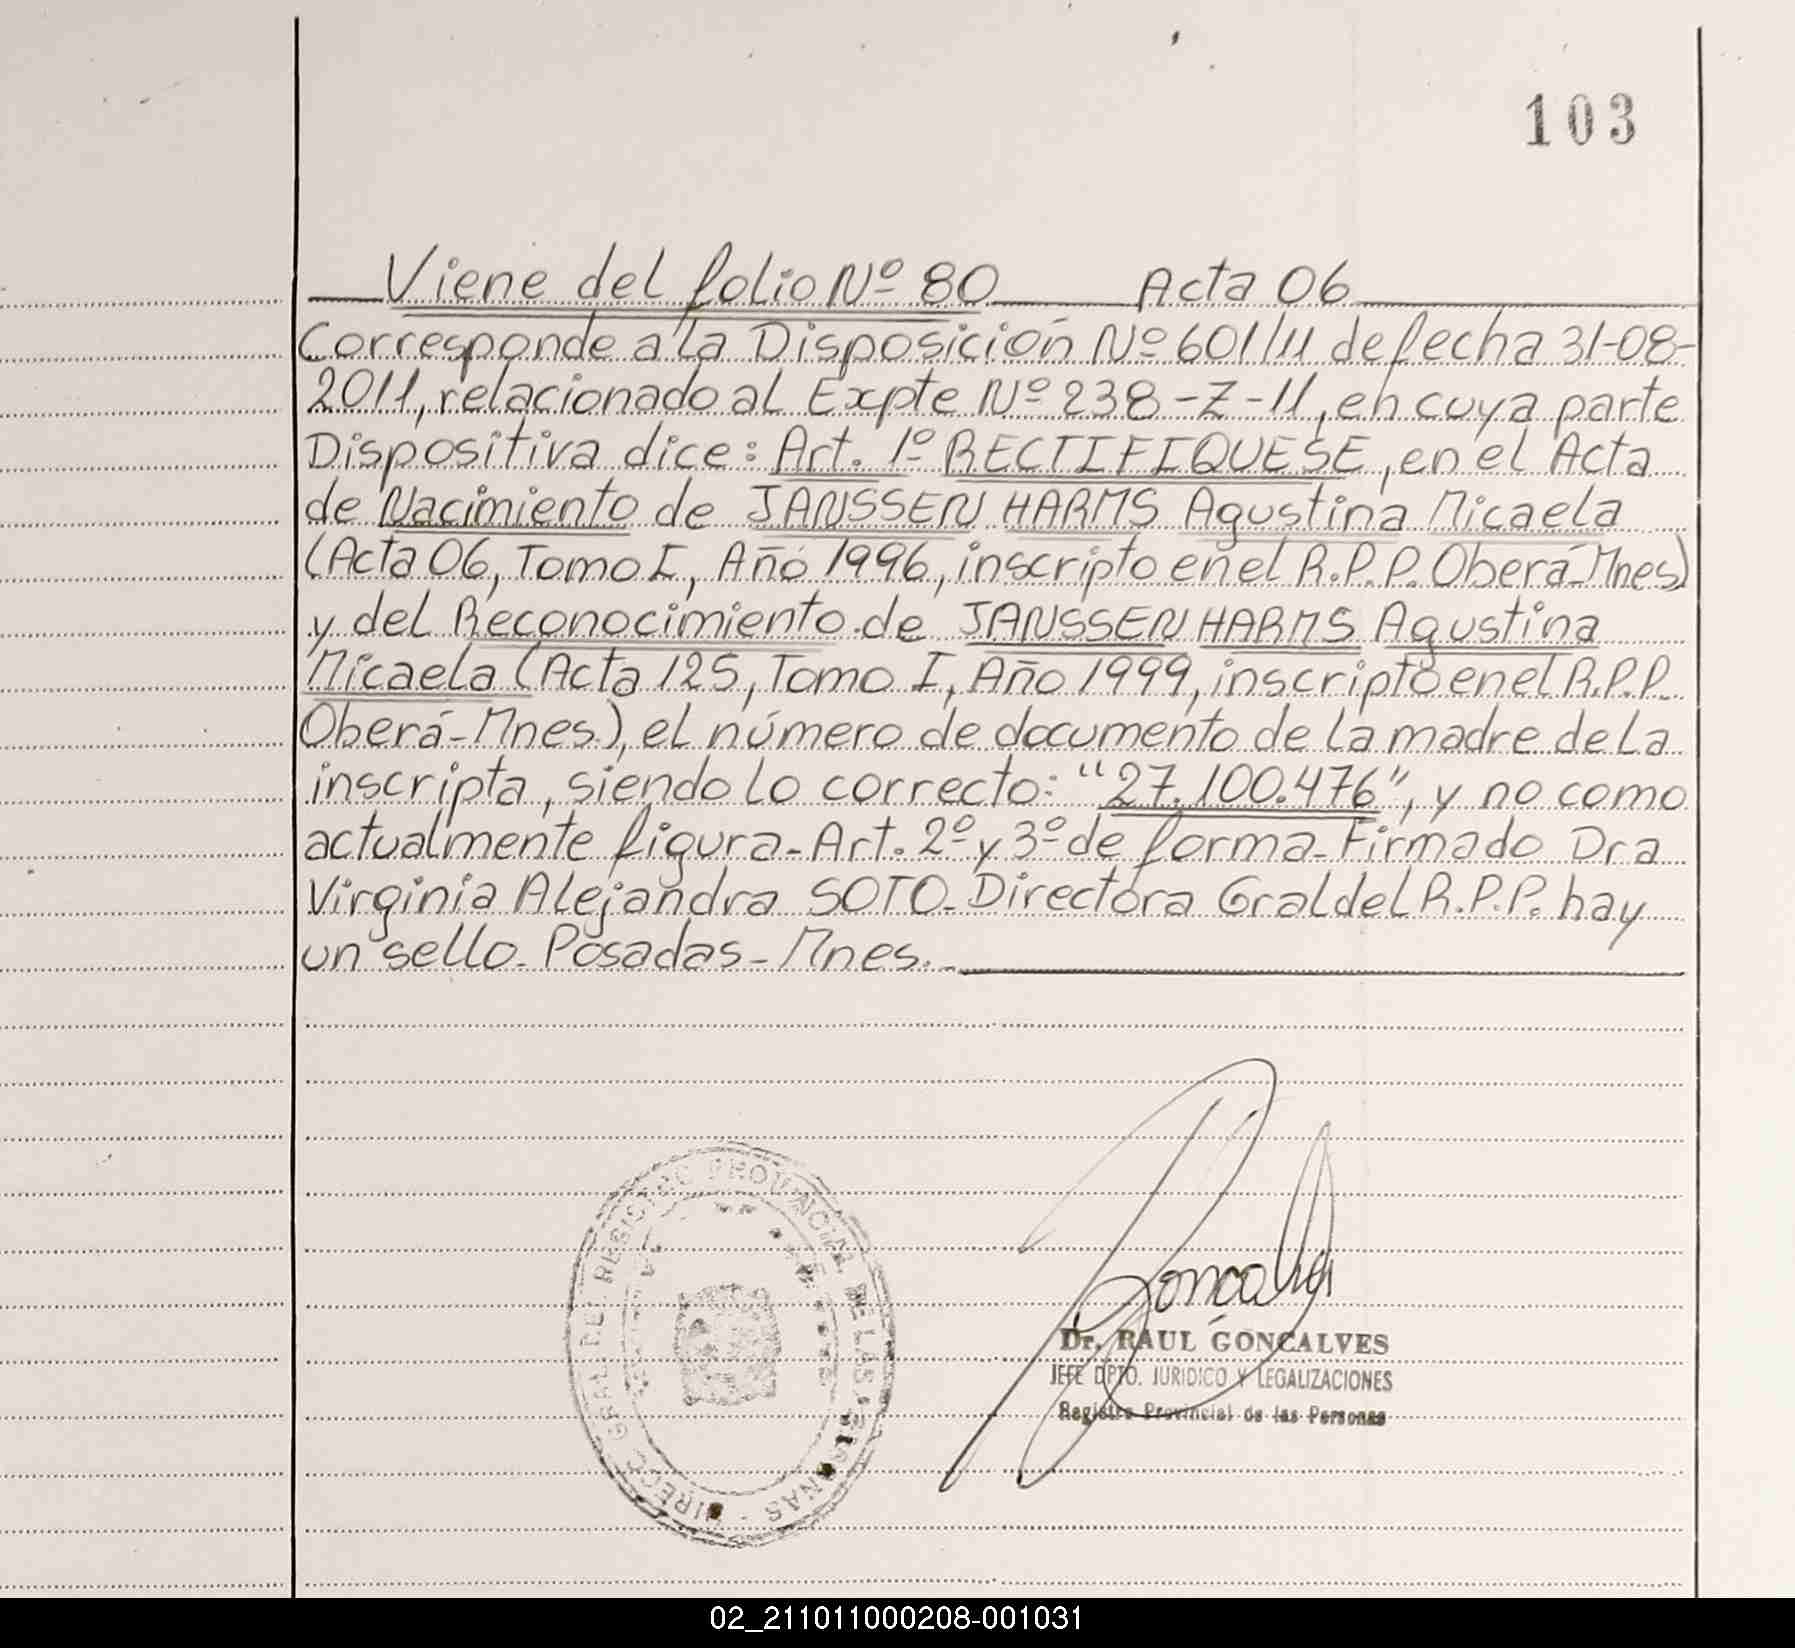 103
Viene del folio Nº 80 Acta 06
Corresponde a la Disposición Nº 601/11 de fecha 31-08-
2011, relacionado al Expte Nº 238-Z-11, en cuya parte
Dispositiva dice: Art. 1º RECTIFIQUESE, en el Acta
de Nacimiento de JANSSEN HARMS Agustina Micaela
(Acta 06, Tomo I, Año 1996, inscripto en el R.P.P. Oberá-Mnes)
y del Reconocimiento de JANSSEN HARMS Agustina
Micaela (Acta 125, Tomo I, Año 1999, inscripto en el R.P.P.
Oberá-Mnes.), el número de documento de la madre de la
inscripta, siendo lo correcto: "27.100.476", y no como
actualmente figura- Art. 2º y 3º de forma- Firmado Dra
Virginia Alejandra SOTO- Directora Gral del R.P.P. hay
un sello- Posadas- Mnes.-
DIRECC. GRAL. DEL REGISTRO PROVINCIAL DE LAS PERSONAS -
Goncalves
Dr. RAUL GONCALVES
JEFE DPTO. JURIDICO Y LEGALIZACIONES
Registro Provincial de las Personas
02_211011000208-001031